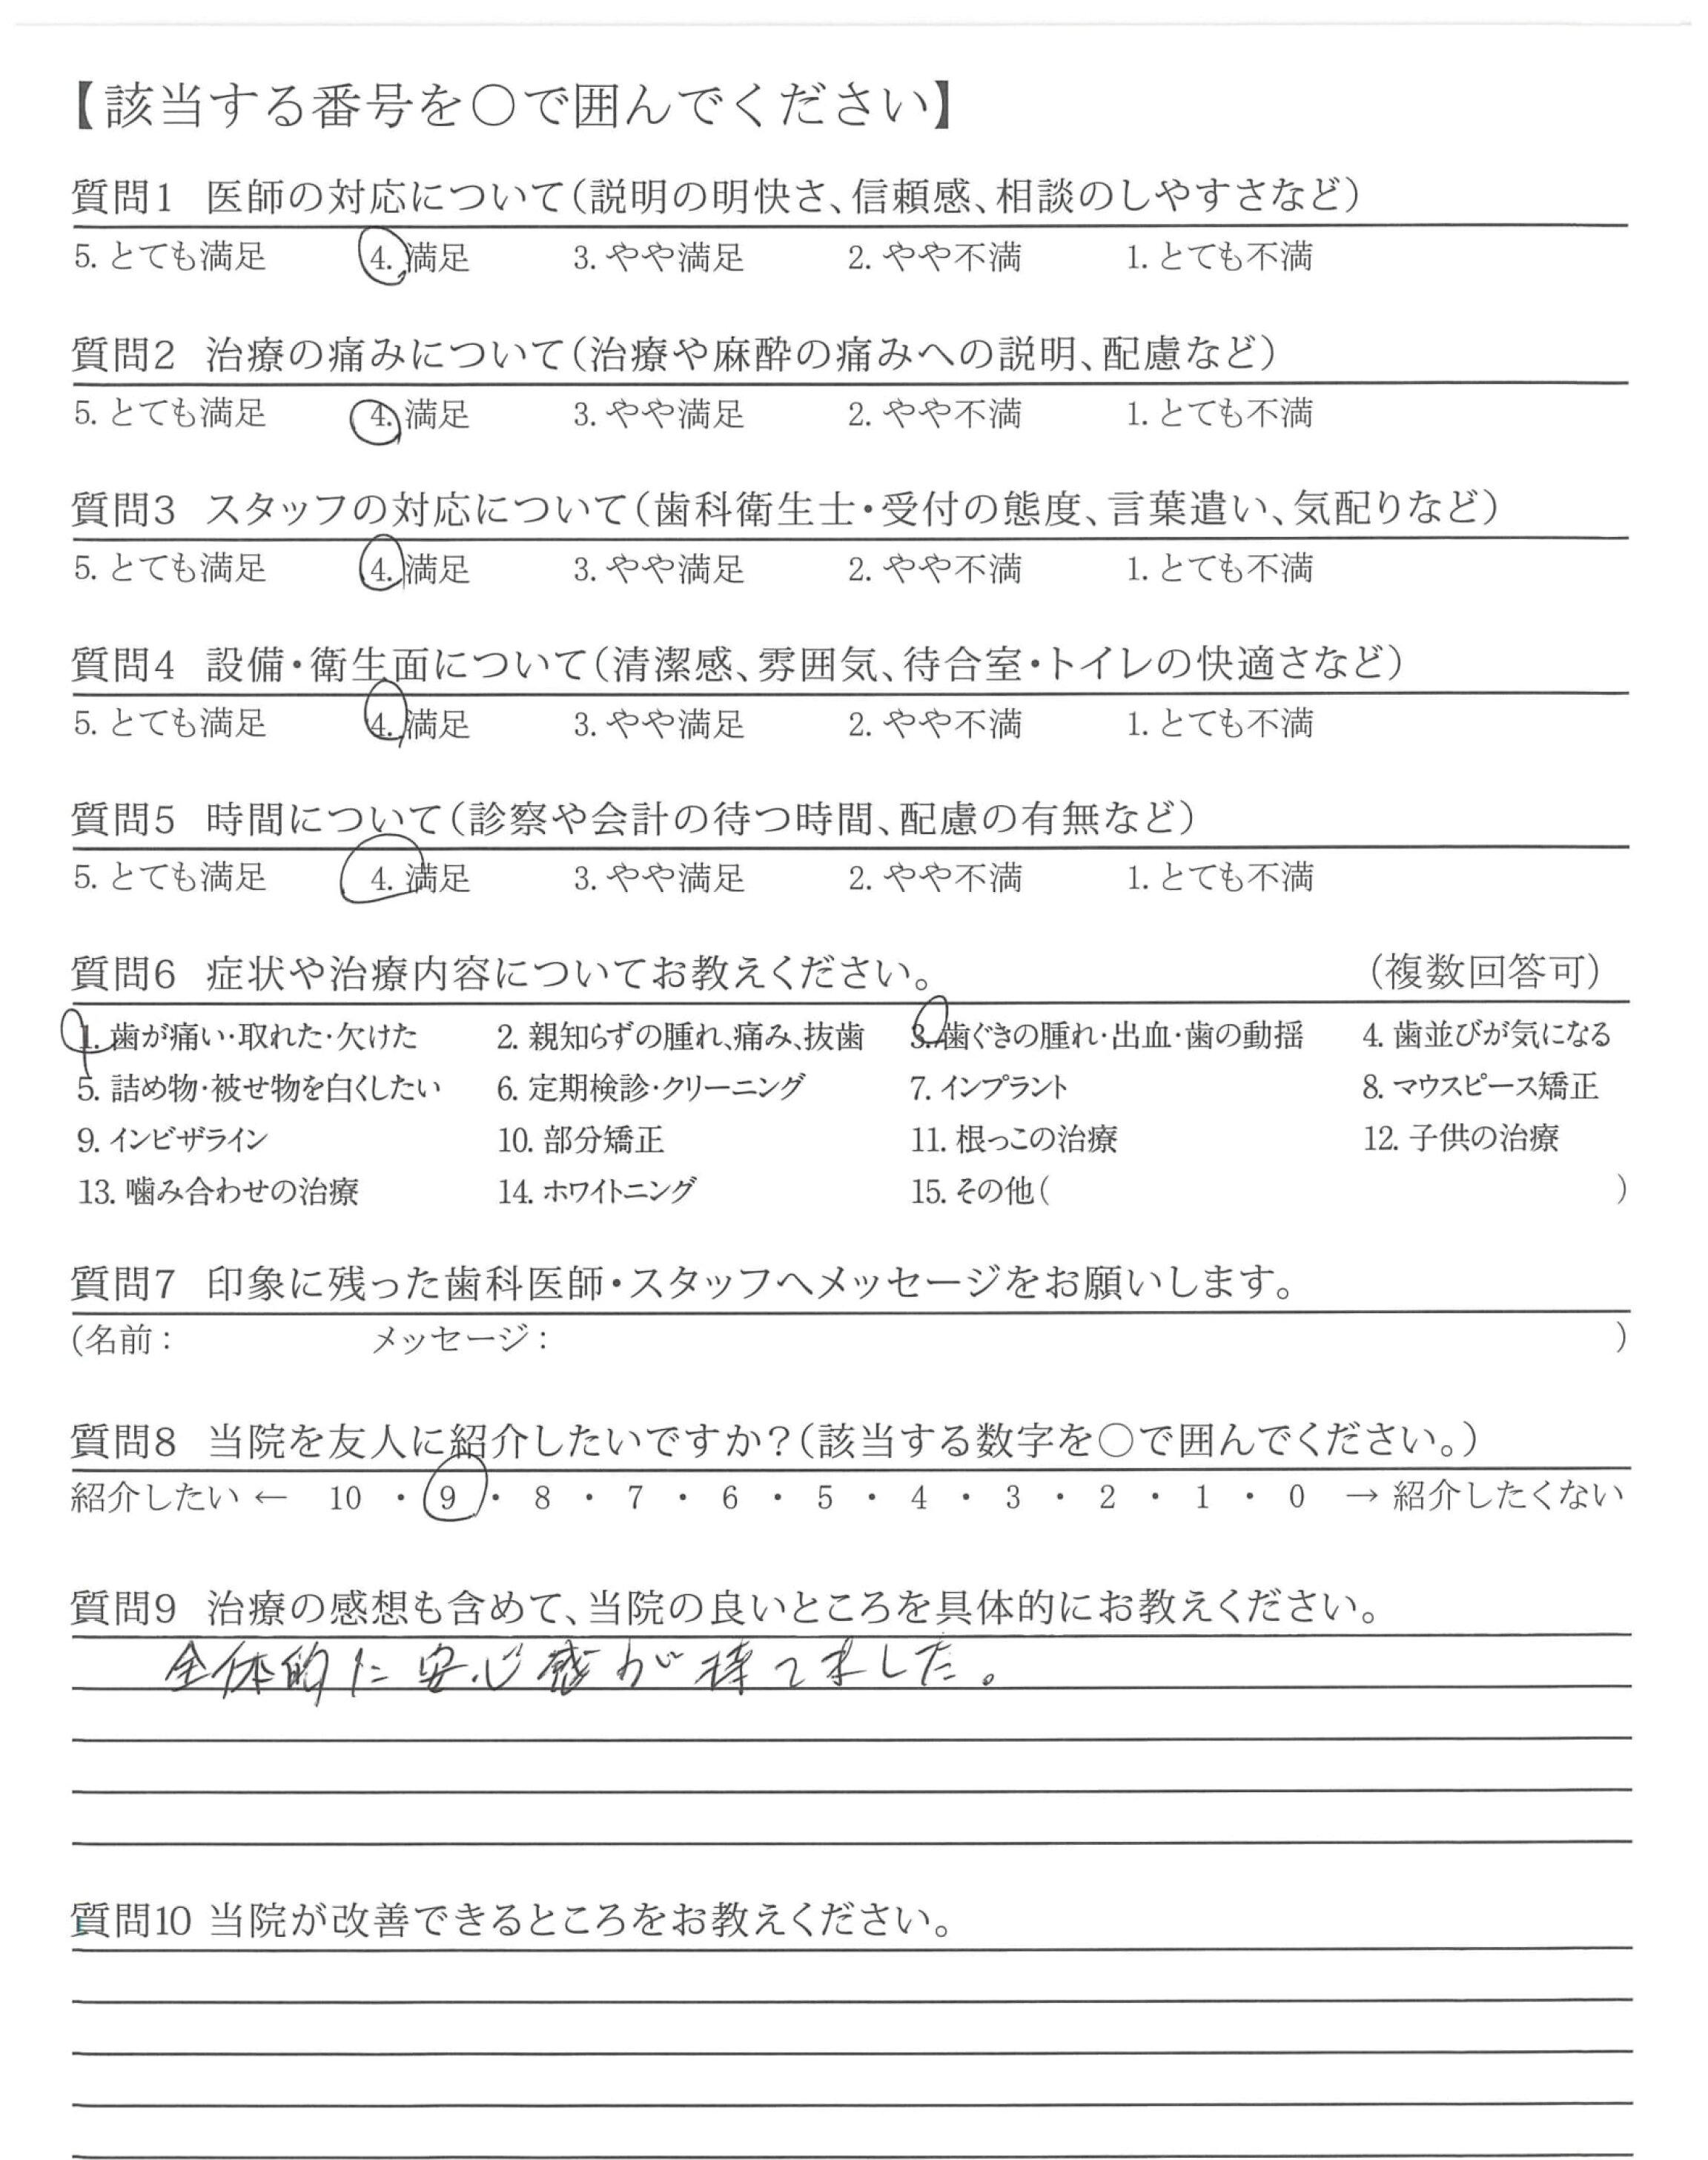 【該当する番号を○で囲んでください】
質問1 医師の対応について(説明の明快さ、信頼感、相談のしやすさなど)
5. とても満足 4. 満足 3. やや満足 2. やや不満 1. とても不満
質問2 治療の痛みについて(治療や麻酔の痛みへの説明、配慮など)
5. とても満足 4. 満足 3. やや満足 2. やや不満 1. とても不満
質問3 スタッフの対応について(歯科衛生士・受付の態度、言葉遣い、気配りなど)
5. とても満足 4. 満足 3. やや満足 2. やや不満 1. とても不満
質問4 設備・衛生面について(清潔感、雰囲気、待合室・トイレの快適さなど)
5. とても満足 4. 満足 3. やや満足 2. やや不満 1. とても不満
質問5 時間について(診察や会計の待つ時間、配慮の有無など)
5. とても満足 4. 満足 3. やや満足 2. やや不満 1. とても不満
質問6 症状や治療内容についてお教えください。 (複数回答可)
1. 歯が痛い・取れた・欠けた 2. 親知らずの腫れ、痛み、抜歯 3. 歯ぐきの腫れ・出血・歯の動揺 4. 歯並びが気になる
5. 詰め物・被せ物を白くしたい 6. 定期検診・クリーニング 7. インプラント 8. マウスピース矯正
9. インビザライン 10. 部分矯正 11. 根っこの治療 12. 子供の治療
13. 噛み合わせの治療 14. ホワイトニング 15. その他( )
質問7 印象に残った歯科医師・スタッフへメッセージをお願いします。
(名前: メッセージ: )
質問8 当院を友人に紹介したいですか?(該当する数字を○で囲んでください。)
紹介したい ← 10 ・ 9 ・ 8 ・ 7 ・ 6 ・ 5 ・ 4 ・ 3 ・ 2 ・ 1 ・ 0 → 紹介したくない
質問9 治療の感想も含めて、当院の良いところを具体的にお教えください。
全体的に安心感が持てました。
質問10 当院が改善できるところをお教えください。